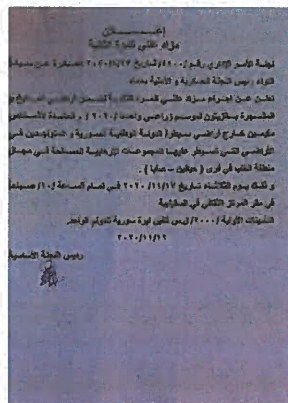 إعــــــلان
مزاد علني للمرة الثانية
لجنة الأمر الإداري رقم /٤٠٠/ تاريخ الصادرة عن سيادة
اللواء رئيس اللجنة العسكرية و الأمنية بحماه
تعلن عن إجراء مزاد علني للمرة الثانية لتضمين أراضي
المشجرة بالزيتون لموسم زراعي واحد /٢٠٢٠/ م العائدة لأشخاص
مقيمين خارج أراضي سيطرة الدولة الوطنية السورية و المتواجدين في
الأراضي التي تسيطر عليها المجموعات الإرهابية المسلحة في مجال
منطقة الغاب في قرى ( ) .
و ذلك يوم الثلاثاء تاريخ ٢٠٢٠/١١/١٧ في تمام الساعة /١٠/ صباحا
في مقر المركز الثقافي في السقيلبية
التأمينات الأولية /٢٠٠٠/ ل.س ألفين ليرة سورية للدونم الواحد
٢٠٢٠/١١/١٢
رئيس اللجنة الأساسية